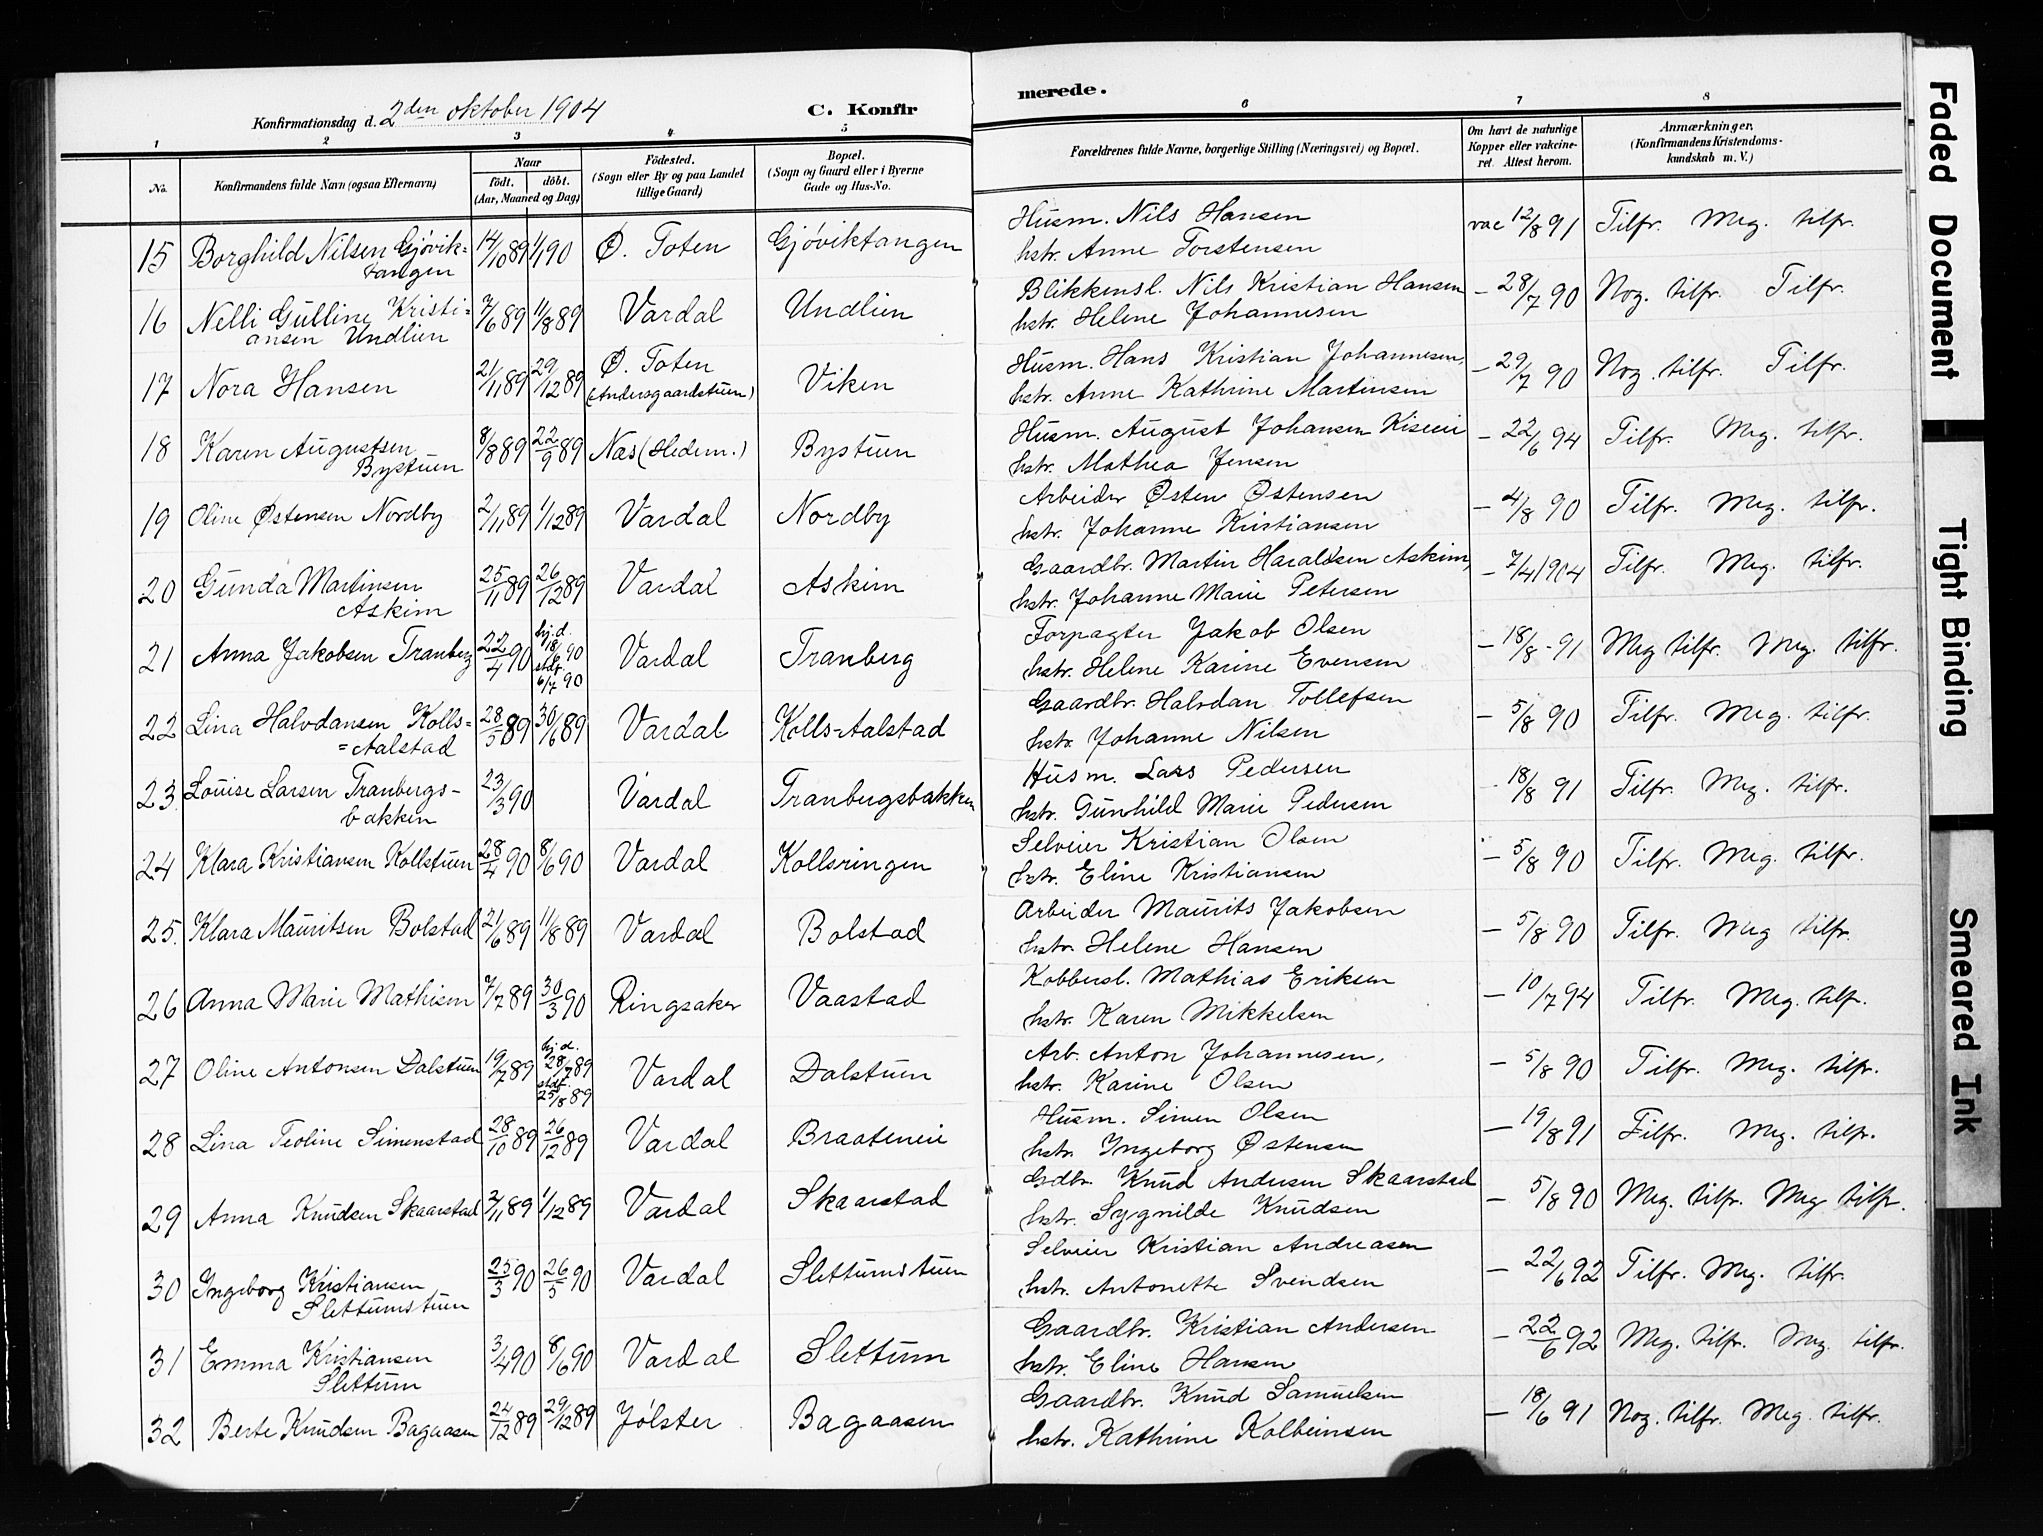 Konfirmationsdag d. 2den oktober 1904
C. Konfir
merede.
1 2 3 4 5 6 7 8
No. Konfirmandens fulde Navn (ogsaa Efternavn) Naar født. døbt. (Aar, Maaned og Dag) Fødested. (Sogn eller By og paa Landet tillige Gaard) Bopæl. (Sogn og Gaard eller i Byerne Gade og Hus-No. Forældrenes fulde Navne, borgerlige Stilling (Næringsvei) og Bopæl. Om havt de naturlige Kopper eller vakcineret. Attest herom. Anmærkninger. (Konfirmandens Kristendomskundskab m. V.)
15 Borghild Nilsen Gjøvik= 14/10 89 1/1 90 Ø. Toten Gjøviktangen Husm. Nils Hansen vac 12/8 91 Tilfr. Meg. tilfr.
tangen hstr. Anne Torstensen
16 Nelli Gulline Kristi= 7/6 89 11/8 89 Vardal Undlien Blikkensl. Nils Kristian Hansen – 28/7 90 Nog. tilfr. Tilfr.
ansen Undlien hstr. Helene Johannesen
17 Nora Hansen 21/11 89 29/12 89 Ø. Toten (Andersgaardstuen) Viken Husm. Hans Kristian Johannesen, – 29/7 90 Nog. tilfr. Tilfr.
hstr. Anne Kathrine Martinsen
18 Karen Augustsen 8/8 89 22/9 89 Næs (Hedem.) Bystuen Husm. August Johansen – 22/6 94 Tilfr. Meg. tilfr.
Bystuen hstr. Mathea Jensen
19 Oline Østensen Nordby 2/11 89 1/12 89 Vardal Nordby Arbeider Østen Østensen – 4/8 90 Tilfr. Meg. tilfr.
hstr. Johanne Kristiansen
20 Gunda Martinsen 25/11 89 26/12 89 Vardal Askim Gaardbr. Martin Haraldsen Askim, – 7/4 1904 Tilfr. Meg. tilfr.
Askim hstr. Johanne Marie Petersen
21 Anna Jakobsen Tranberg 22/4 90 hj.d. 18/6 90 stdf. 6/7 90 Vardal Tranberg Forpagter Jakob Olsen – 18/8 - 91 Meg tilfr. Meg. tilfr.
hstr. Helene Karine Evensen
22 Lina Halvdansen Kolls= 28/5 89 30/6 89 Vardal Kolls-Aalstad Gaardbr. Halvdan Tollefsen – 5/8 90 Tilfr. Meg. tilfr.
=Aalstad hstr. Johanne Nilsen
23. Louise Larsen Tranbergs- 23/3 90 Vardal Tranbergsbakken Husm. Lars Pedersen 18/8 91 Tilfr. Meg. tilfr.
bakken hstr. Gunhild Marie Pedersen
24 Klara Kristiansen Kollstuen 28/4 90 8/6 90 Vardal Kollsringen Selveier Kristian Olsen – 5/8 90 Tilfr. Meg. tilfr.
hstr. Eline Kristiansen
25. Klara Mauritsen Bolstad 21/6 89 11/8 89 Vardal Bolstad Arbeider Maurits Jakobsen – 5/8 90 Tilfr. Meg tilfr.
hstr. Helene Hansen
26 Anna Marie Mathisen 7/7 89 30/3 90 Ringsaker Vaastad Kobbersl. Mathias Eriksen – 10/7 94 Tilfr. Meg. tilfr.
hstr. Karen Mikkelsen
27 Oline Antonsen Dalstuen 19/7 89 hj.d. 28/7 89 stdf. 25/8 89 Vardal Dalstuen Arb. Anton Johannesen, – 5/8 90 Tilfr. Meg. tilfr.
hstr. Karine Olsen
28 Lina Teoline Simenstad 28/10 89 26/12 89 Vardal Braateneie Husm. Simen Olsen – 19/8 91 Tilfr. Meg. tilfr.
hstr. Ingeborg Østensen
29 Anna Knudsen Skaarstad 2/11 89 1/12 89 Vardal Skaarstad Gdbr. Knud Andersen Skaarstad – 5/8 90 Meg. tilfr. Meg tilfr.
hstr. Sygnilde Knudsen
30 Ingeborg Kristiansen 25/3 90 26/5 90 Vardal Slettumstuen Selveier Kristian Andreasen – 22/6 92 Tilfr. Meg. tilfr.
Slettumstuen hstr. Antonette Svendsen
31 Emma Kristiansen 3/4 90 8/6 90 Vardal Slettum Gaardbr. Kristian Andersen – 22/6 92 Meg. tilfr. Meg. tilfr.
Slettum hstr. Eline Hansen
32 Berte Knudsen Bagaasen 24/12 89 29/12 89 Jølster Bagaasen Gaardbr. Knud Samuelsen – 18/6 91 Nog. tilfr. Meg. tilfr.
hstr. Kathrine Kolbeinsen
Faded Document
Tight Binding
Smeared Ink